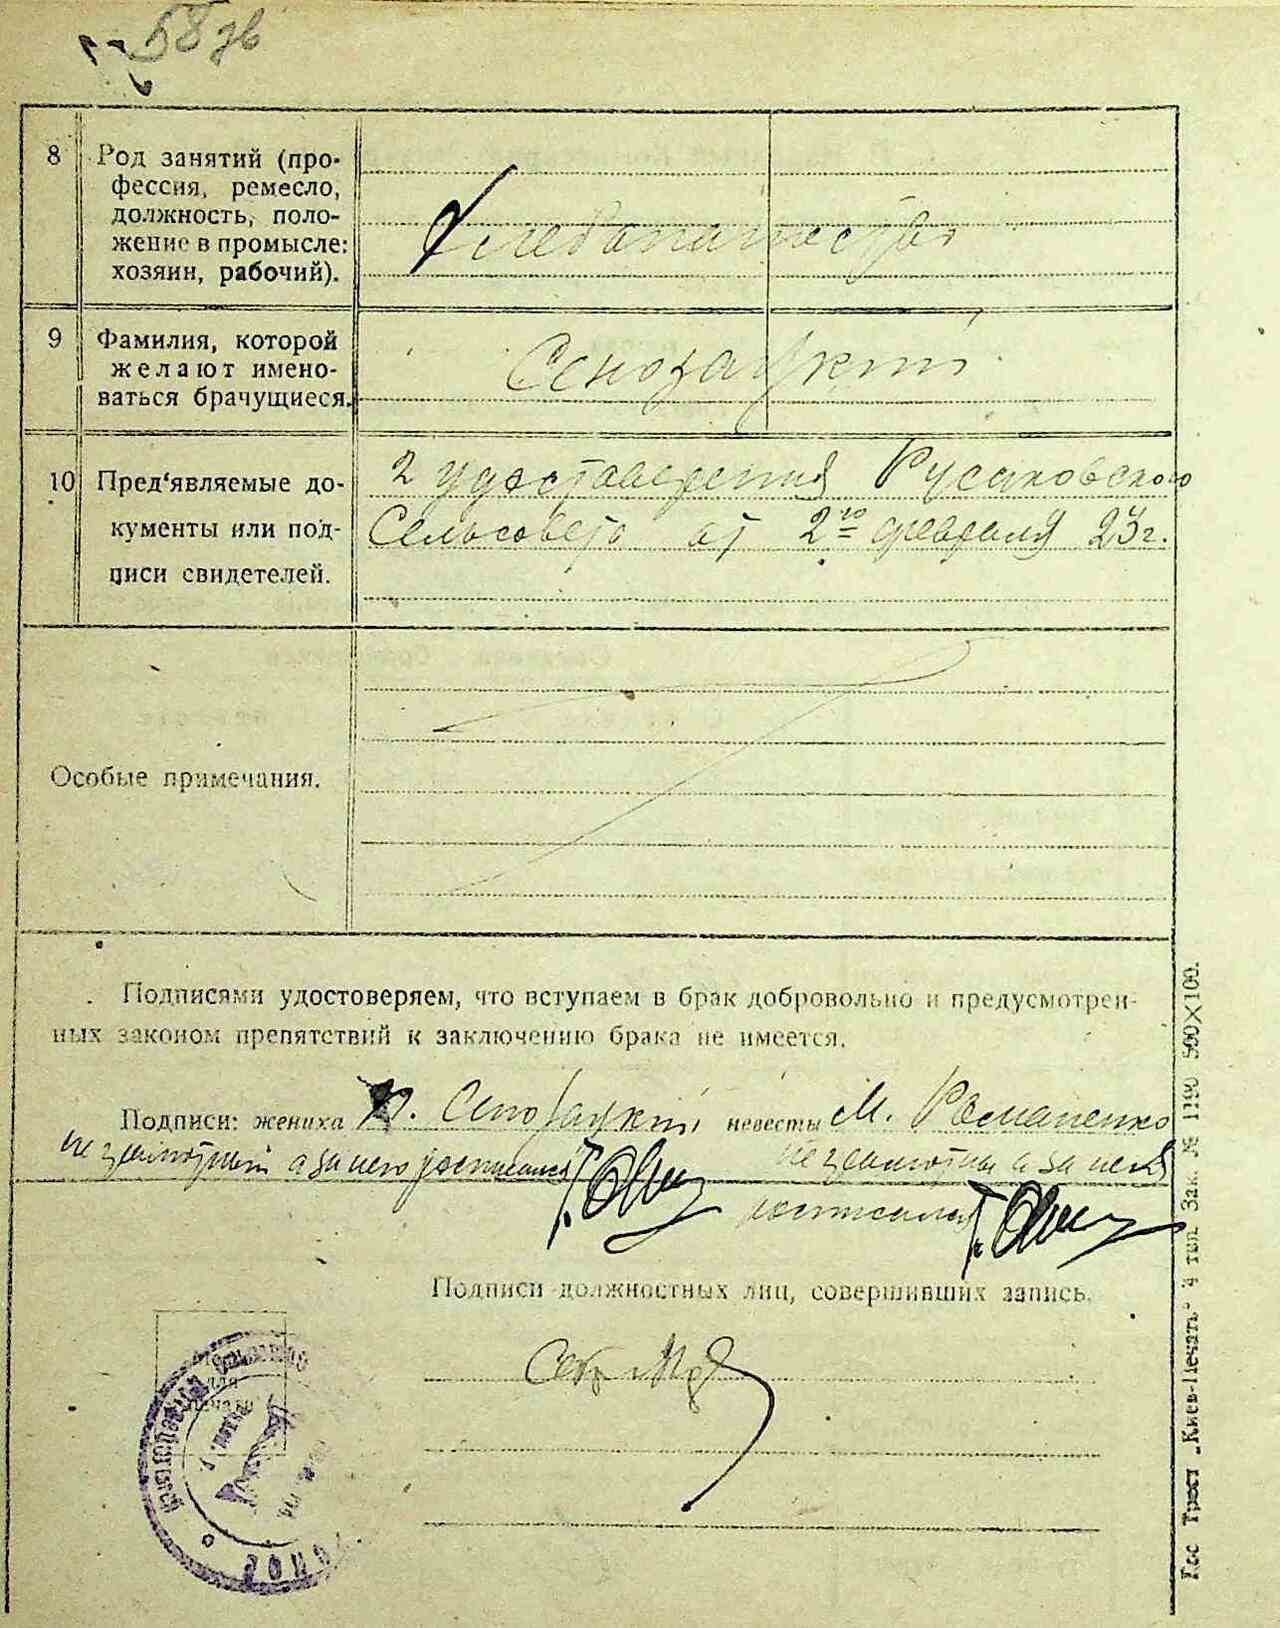 58 зв
8 Род занятий (про-
фессия, ремесло,
должность, поло-
жение в промысле:
хозяин, рабочий).
Хлебопашество
9 Фамилия, которой
желают имено-
ваться брачущиеся.
Сенозацкий
10 Пред'являемые до-
кументы или под-
писи свидетелей.
2 удостоверения Русаковского
Сельсовета от 2го февраля 23г.
Особые примечания.
Подписями удостоверяем, что вступаем в брак добровольно и предусмотрен-
ных законом препятствий к заключению брака не имеется.
Подписи: жениха Сенозацкий невесты М. Романенко
неграмотный а за него росписался неграмотна а за нея
росписался
Подписи должностных лиц, совершивших запись.
для
печати
Гос Трест „Киев-Печать" 4 тип. Зак. № 1190 500×100.